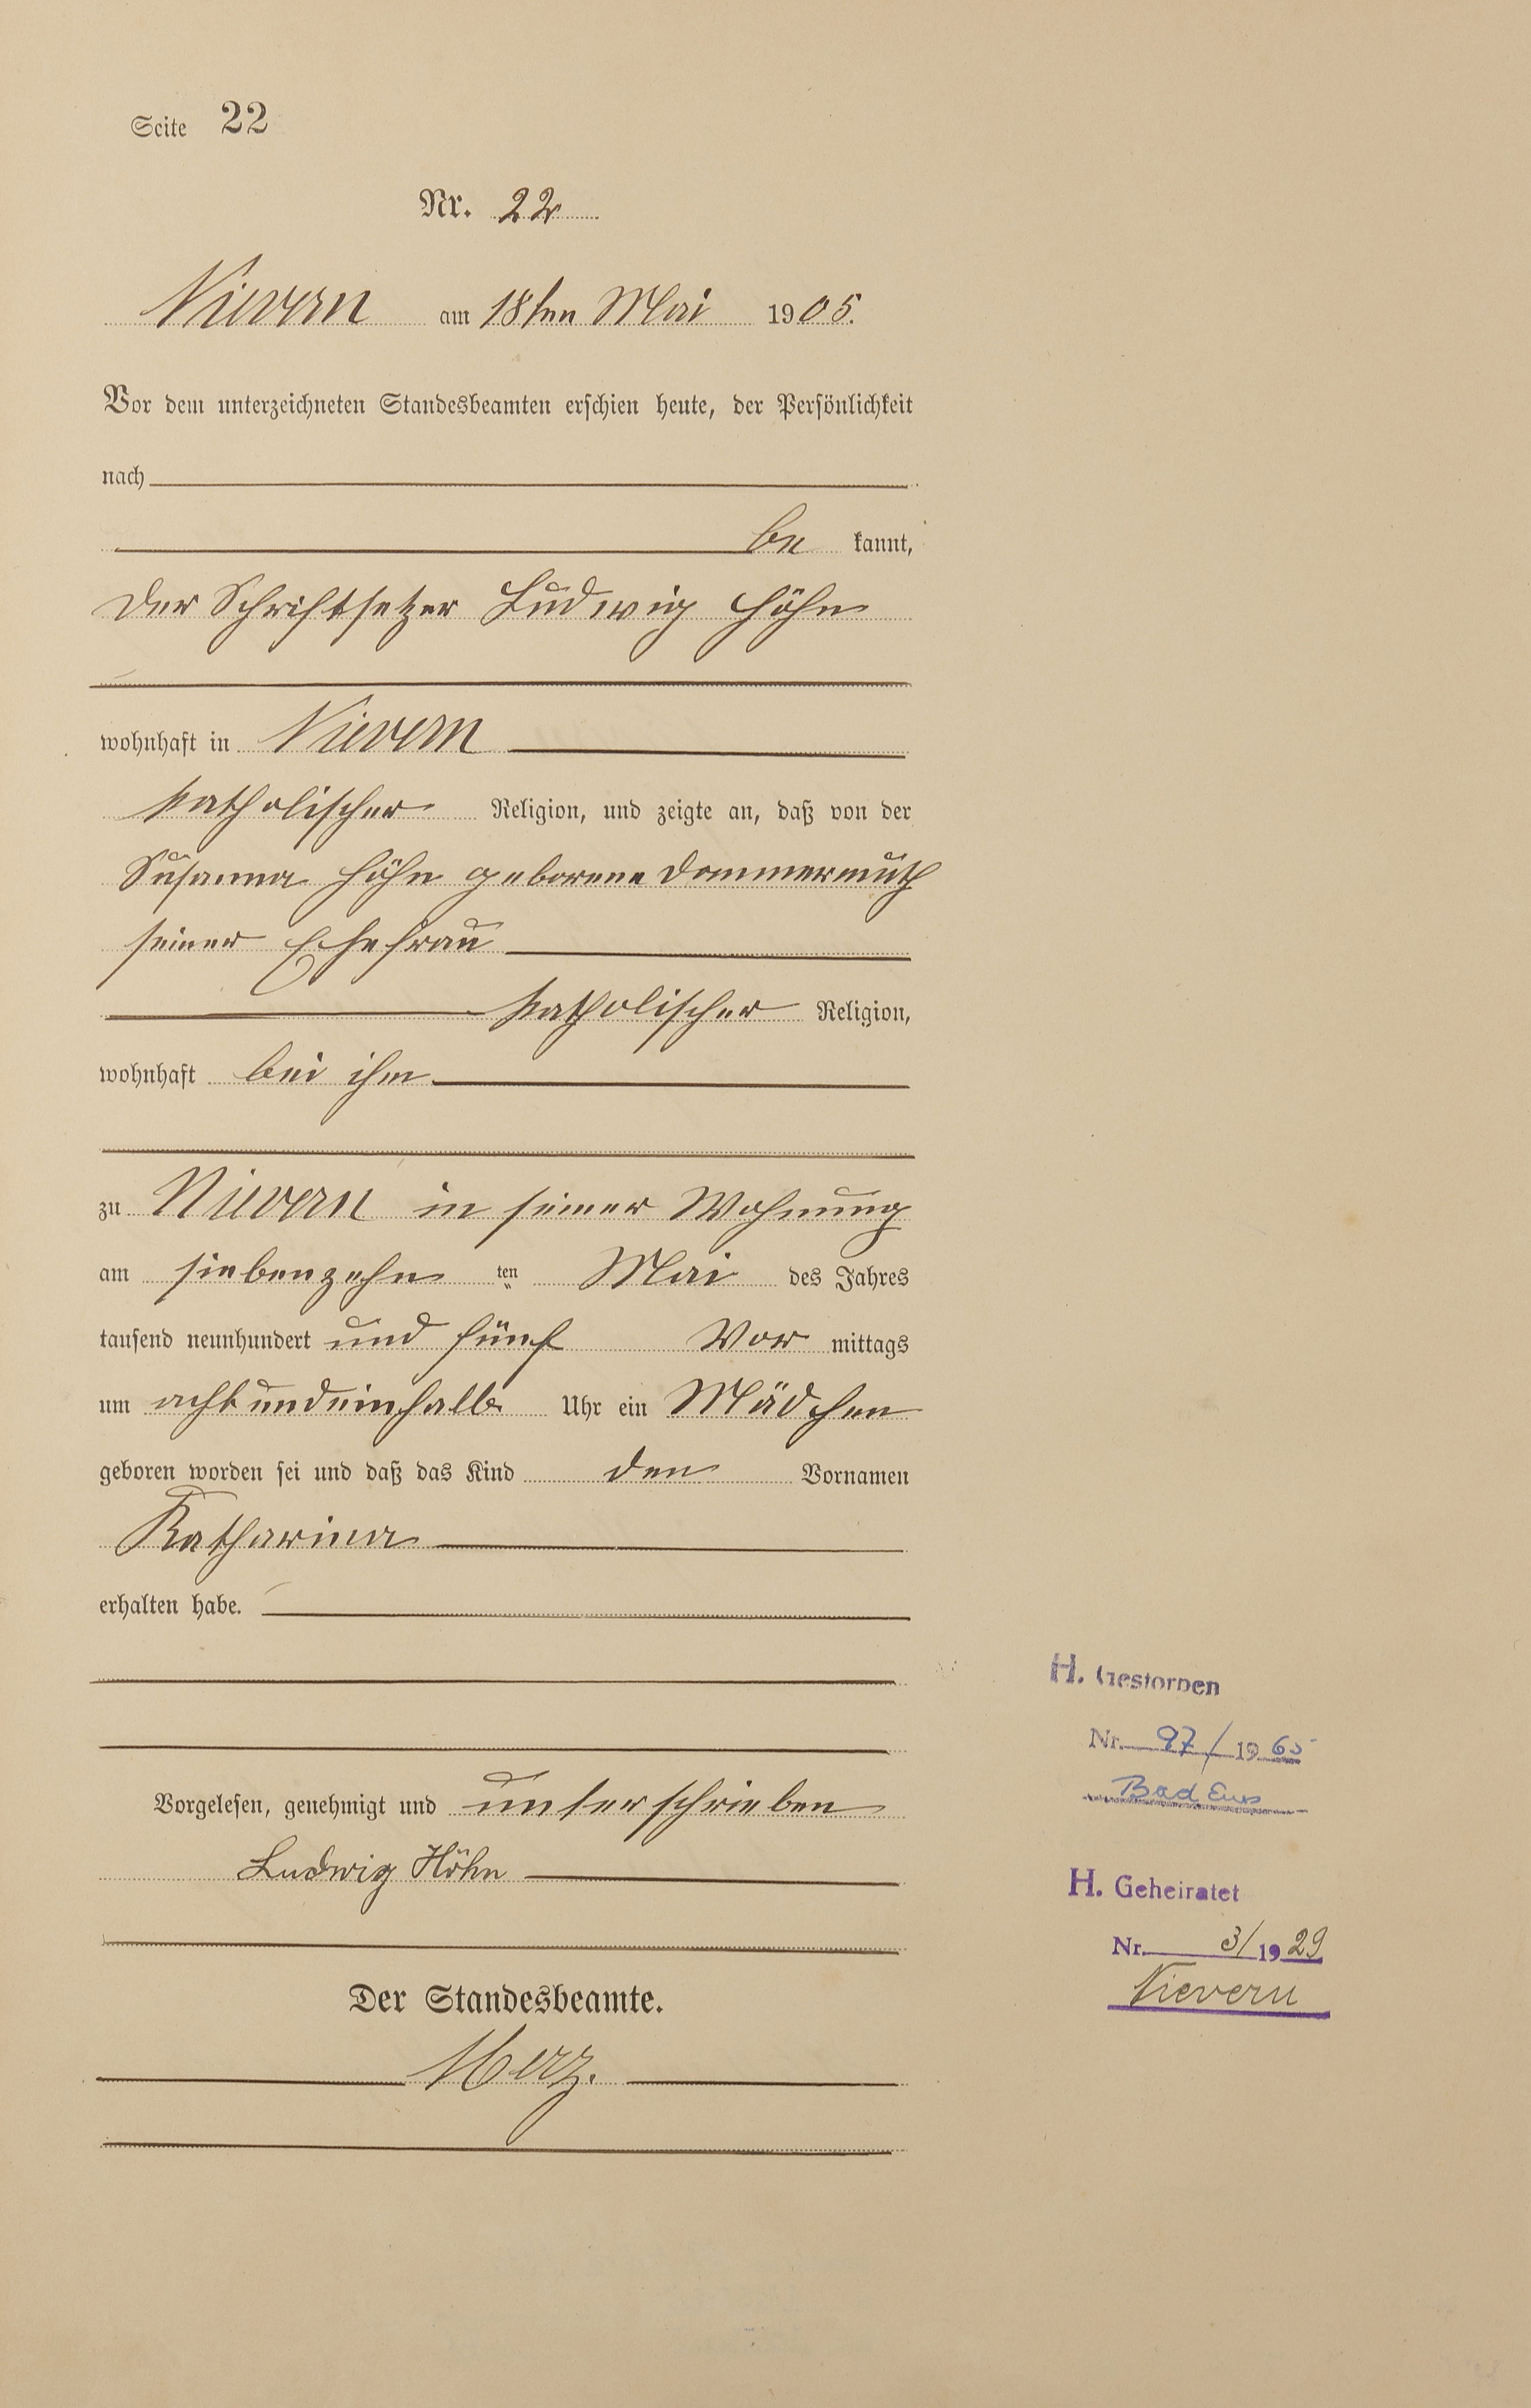 Seite 22
Nr. 22
Nievern am 18ten Mai 1905.
Vor dem unterzeichneten Standesbeamten erschien heute, der Persönlichkeit
nach
be kannt,
der Schriftsetzer Ludwig Höhn
wohnhaft in Nievern
katholischer Religion, und zeigte an, daß von der
Susanna Höhn geborene Dommermuth
seiner Ehefrau
katholischer Religion,
wohnhaft bei ihm
zu Nievern in seiner Wohnung
am siebenzehn ten Mai des Jahres
tausend neunhundert und fünf Vor mittags
um achtundeinhalb Uhr ein Mädchen
geboren worden sei und daß das Kind den Vornamen
Katharina
erhalten habe.
Vorgelesen, genehmigt und unterschrieben
Ludwig Höhn
Der Standesbeamte.
Merz.
H. Gestorben
Nr. 97/1965
Bad Ems
H. Geheiratet
Nr. 3/1929
Nievern